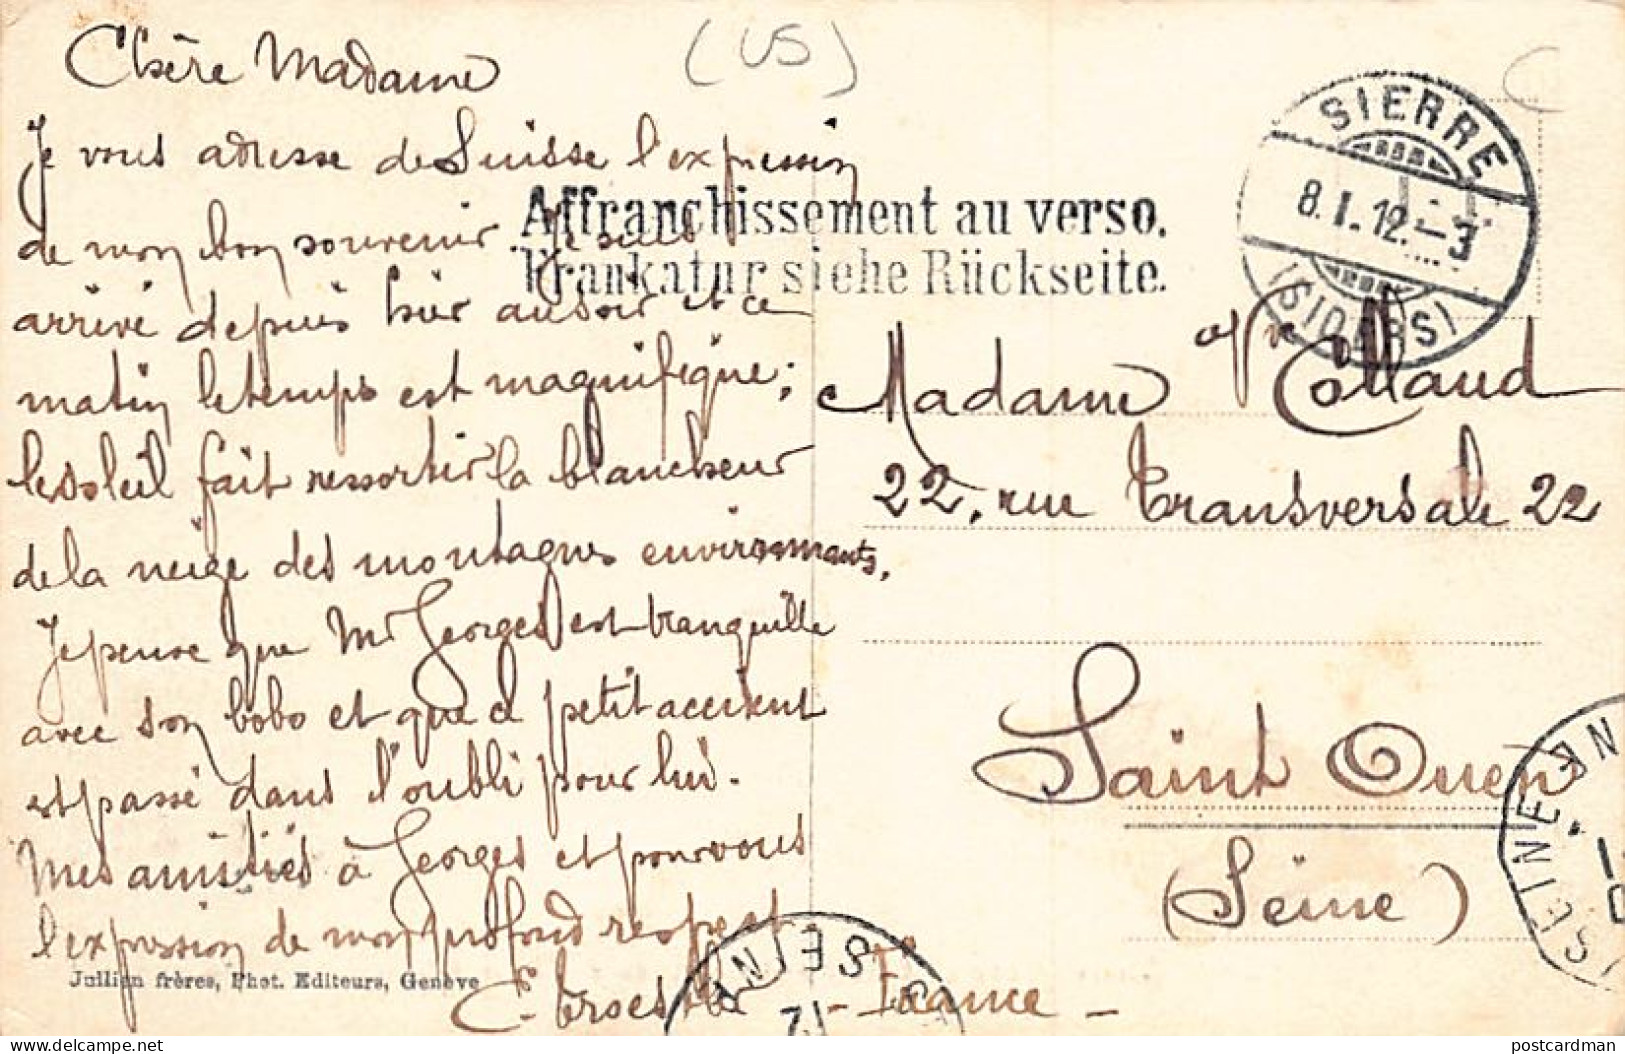 Chère Madame
Je vous adresse de Suisse l'expression
de mon bon souvenir Je suis
arrivé depuis hier au soir et ce
matin le temps est magnifique;
le soleil fait ressortir la blancheur
de la neige des montagnes environnants.
Je pense que Mr Georges est tranquille
avec son bobo et que ce petit accident
est passé dans l'oubli pour lui.
Mes amitiés à Georges et pour vous
l'expression de mon profond respect
Jullien frères, Phot. Editeurs, Genève
(US)
Affranchissement au verso.
Frankatur siehe Rückseite.
SIERRE
8.I.12.-3
(SIDERS)
Madame Ve
22, rue Transversale 22
Saint Ouen
(Seine)
France
SEINE
SEINE
12
postcardman
delcampe.net